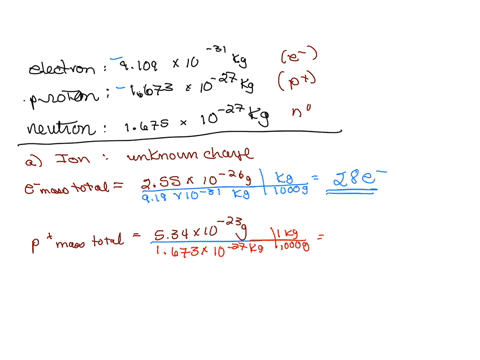 electron : 9.109 × 10^-31 Kg (e⁻)
proton : 1.673 × 10^-27 Kg (p⁺)
neutron : 1.675 × 10^-27 Kg n⁰
a) Ion : unknown charge
e⁻ mass total = 2.55 × 10^-26 g | Kg = 28e⁻
9.19 × 10^-31 Kg | 1000g
p⁺ mass total = 5.34 × 10^-23 g | 1 Kg =
1.673 × 10^-27 Kg | 1000g